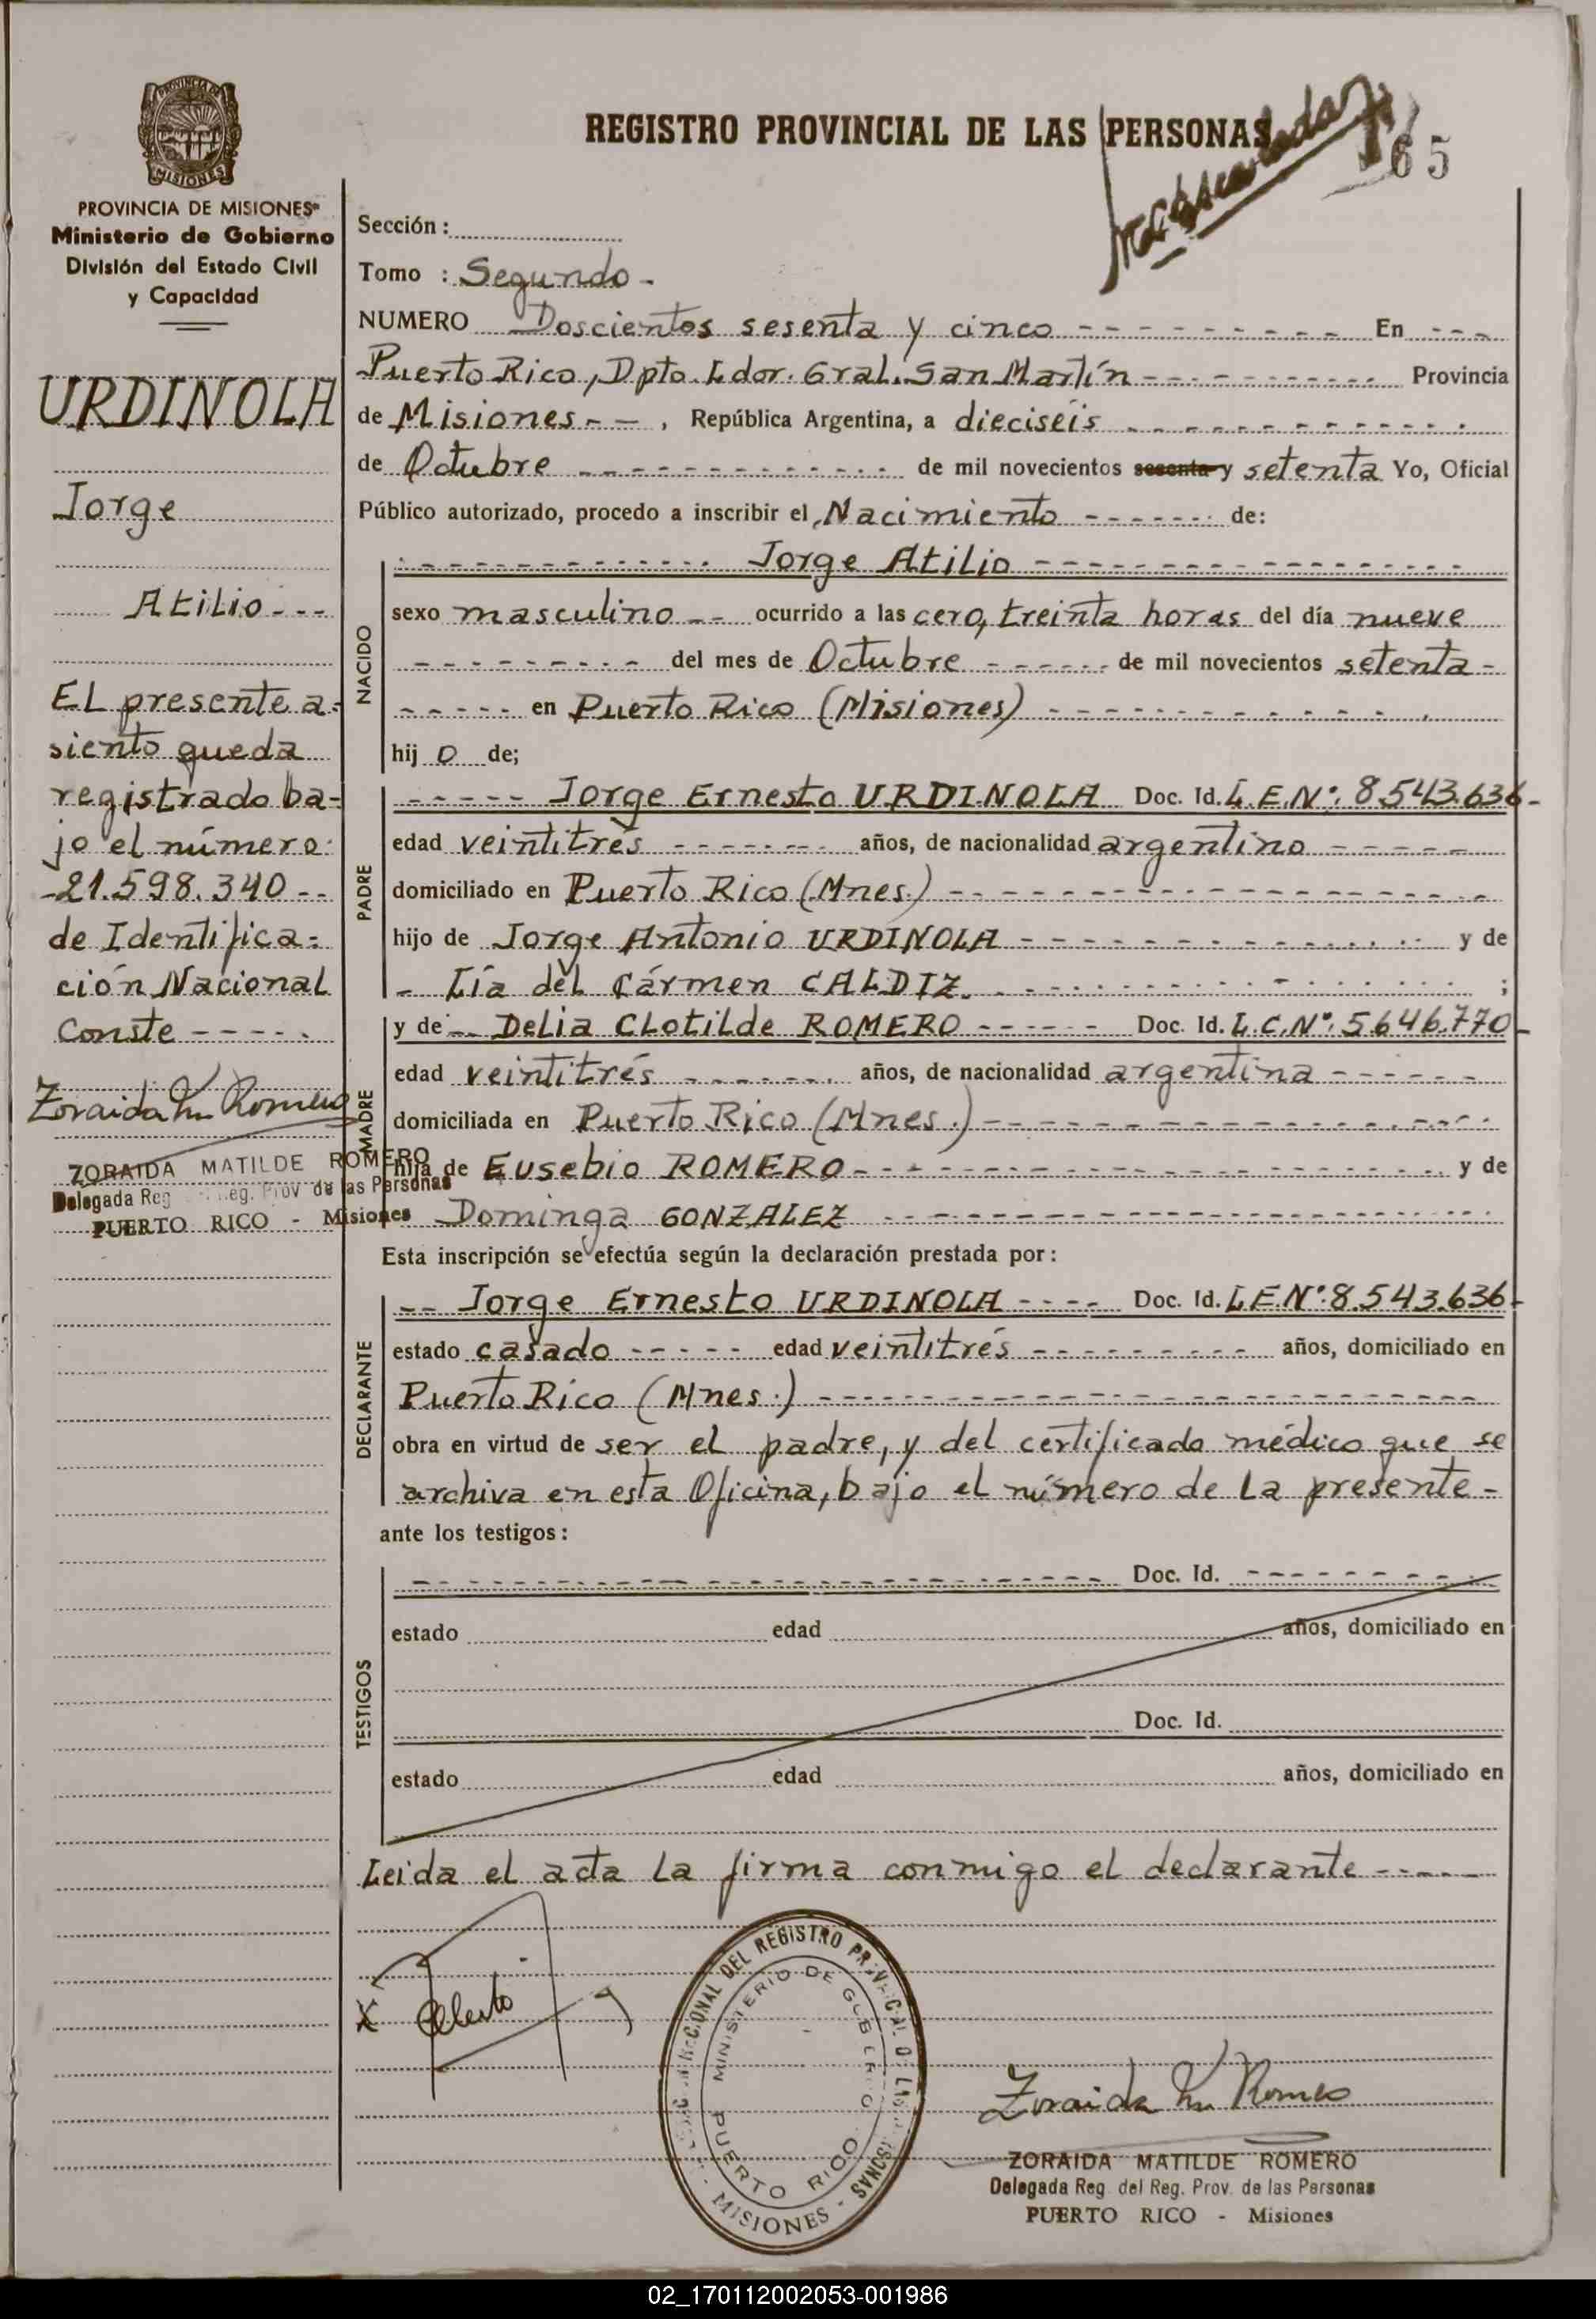 PROVINCIA DE MISIONES
Ministerio de Gobierno
División del Estado Civil
y Capacidad
URDINOLA
Jorge
Atilio---
El presente a-
siento queda
registrado ba-
jo el número:
-21.598.340--
de Identifica-
ción Nacional
Conste-----
Zoraida M. Romero
ZORAIDA MATILDE ROMERO
Delegada Reg. Prov de las Personas
PUERTO RICO - Misiones
REGISTRO PROVINCIAL DE LAS PERSONAS
65
Sección:
Tomo : Segundo-
NUMERO Doscientos sesenta y cinco --------- En ---
Puerto Rico, Dpto. Ldor. Gral. San Martín ----------- Provincia
de Misiones -- , República Argentina, a dieciseis ------------
de Octubre ------------ de mil novecientos sesenta y setenta Yo, Oficial
Público autorizado, procedo a inscribir el Nacimiento ------ de:
NACIDO
------------ Jorge Atilio ----------------
sexo masculino -- ocurrido a las cero, treinta horas del día nueve
--------- del mes de Octubre ------ de mil novecientos setenta -
----- en Puerto Rico (Misiones) ------------
hij o de;
PADRE
----- Jorge Ernesto URDINOLA Doc. Id. L.E.Nº: 8.543.636-
edad veintitrés ------- años, de nacionalidad argentino -----
domiciliado en Puerto Rico (Mnes.) -----------------
hijo de Jorge Antonio URDINOLA ------------- y de
- Lía del Cármen CALDIZ. ------------- ;
MADRE
y de -- Delia Clotilde ROMERO ------ Doc. Id. L.C.Nº: 5.646.770-
edad veintitrés ------- años, de nacionalidad argentina ------
domiciliada en Puerto Rico (Mnes.) ----------------
hija de Eusebio ROMERO ------------------ y de
Dominga GONZALEZ --------------------
Esta inscripción se efectúa según la declaración prestada por:
DECLARANTE
-- Jorge Ernesto URDINOLA ---- Doc. Id. L.E.Nº: 8.543.636-
estado casado ----- edad veintitrés --------- años, domiciliado en
Puerto Rico (Mnes.) ------------------------
obra en virtud de ser el padre, y del certificado médico que se
archiva en esta Oficina, bajo el número de la presente -
ante los testigos:
TESTIGOS
------------------------ Doc. Id. --------
estado edad años, domiciliado en
Doc. Id.
estado edad años, domiciliado en
Leida el acta la firma conmigo el declarante -----
X
DEL REGISTRO PROVINCIAL DE LAS PERSONAS
MINISTERIO DE GOBIERNO
PUERTO RICO
- MISIONES -
Zoraida M. Romero
ZORAIDA MATILDE ROMERO
Delegada Reg. del Reg. Prov. de las Personas
PUERTO RICO - Misiones
02_170112002053-001986